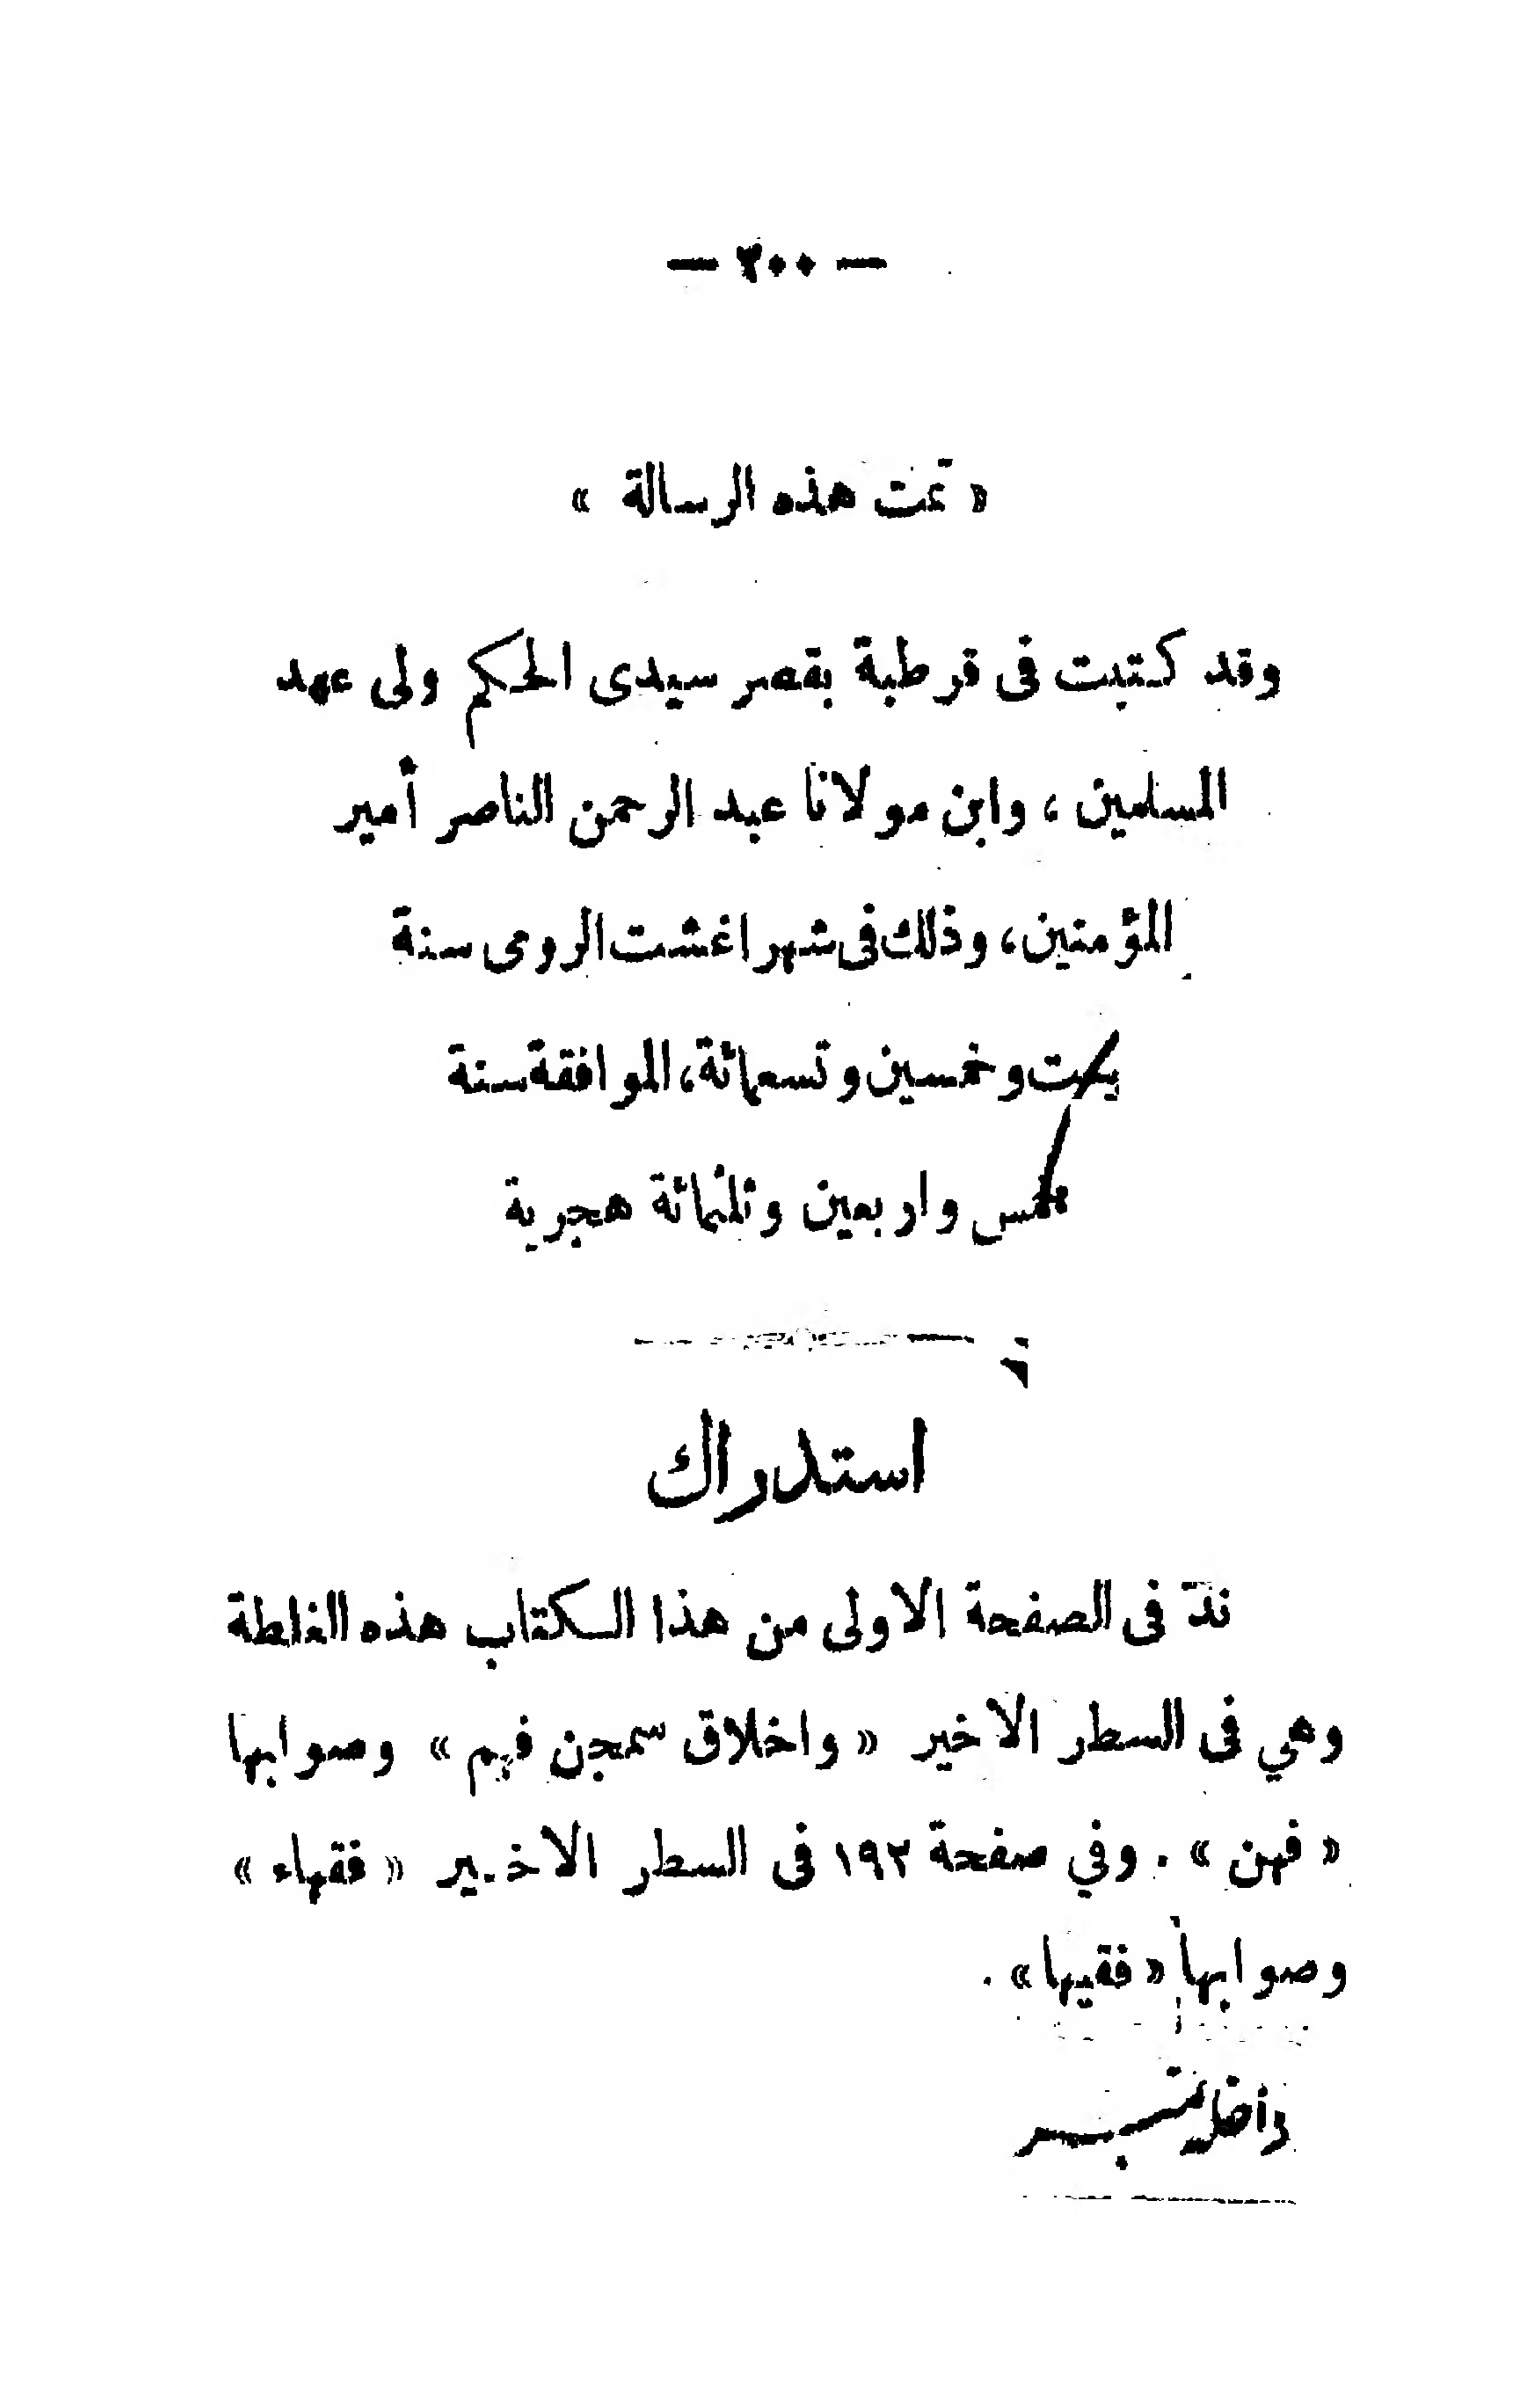 — ٢٠٠ —
« تمت هذه الرسالة »
وقد كتبت فى قرطبة بقصر سيدى الحكم ولى عهد
المسلمين ، وابن مولانا عبد الرحمن الناصر أمير
المؤمنين ، وذلك فى شهر اغشت الرومى سنة
ست وخمسين وتسعمائة ، الموافقة سنة
خمس واربعين وثلثمائة هجرية
استدراك
ندّ فى الصفحة الاولى من هذا الكتاب هذه الغلطة
وهي فى السطر الاخير « واخلاق سمجن فهم » وصوابها
« فهن » . وفي صفحة ١٩٢ فى السطر الاخير « فقهاء »
وصوابها « فقيها » .